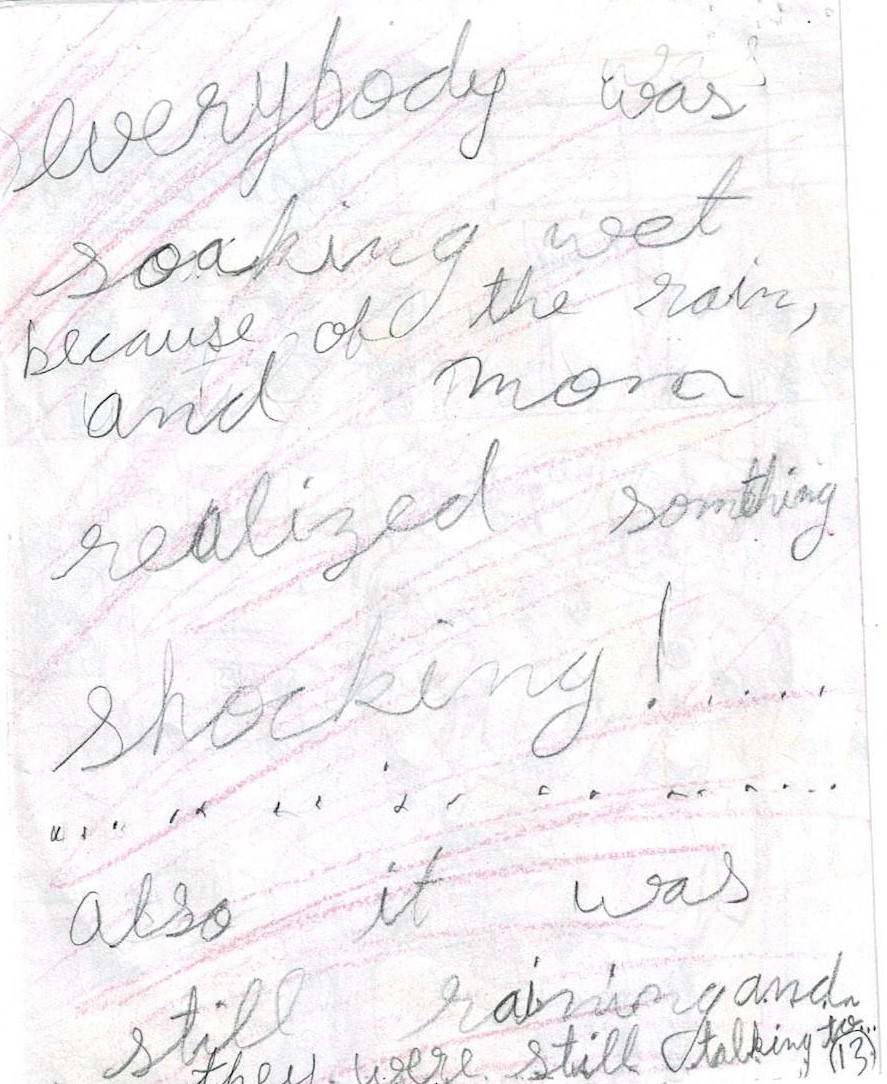 everybody was
soaking wet
because of the rain,
and mom
realized somthing
shocking! .....
....................
also it was
still raining and
they were still talking to..
(13)